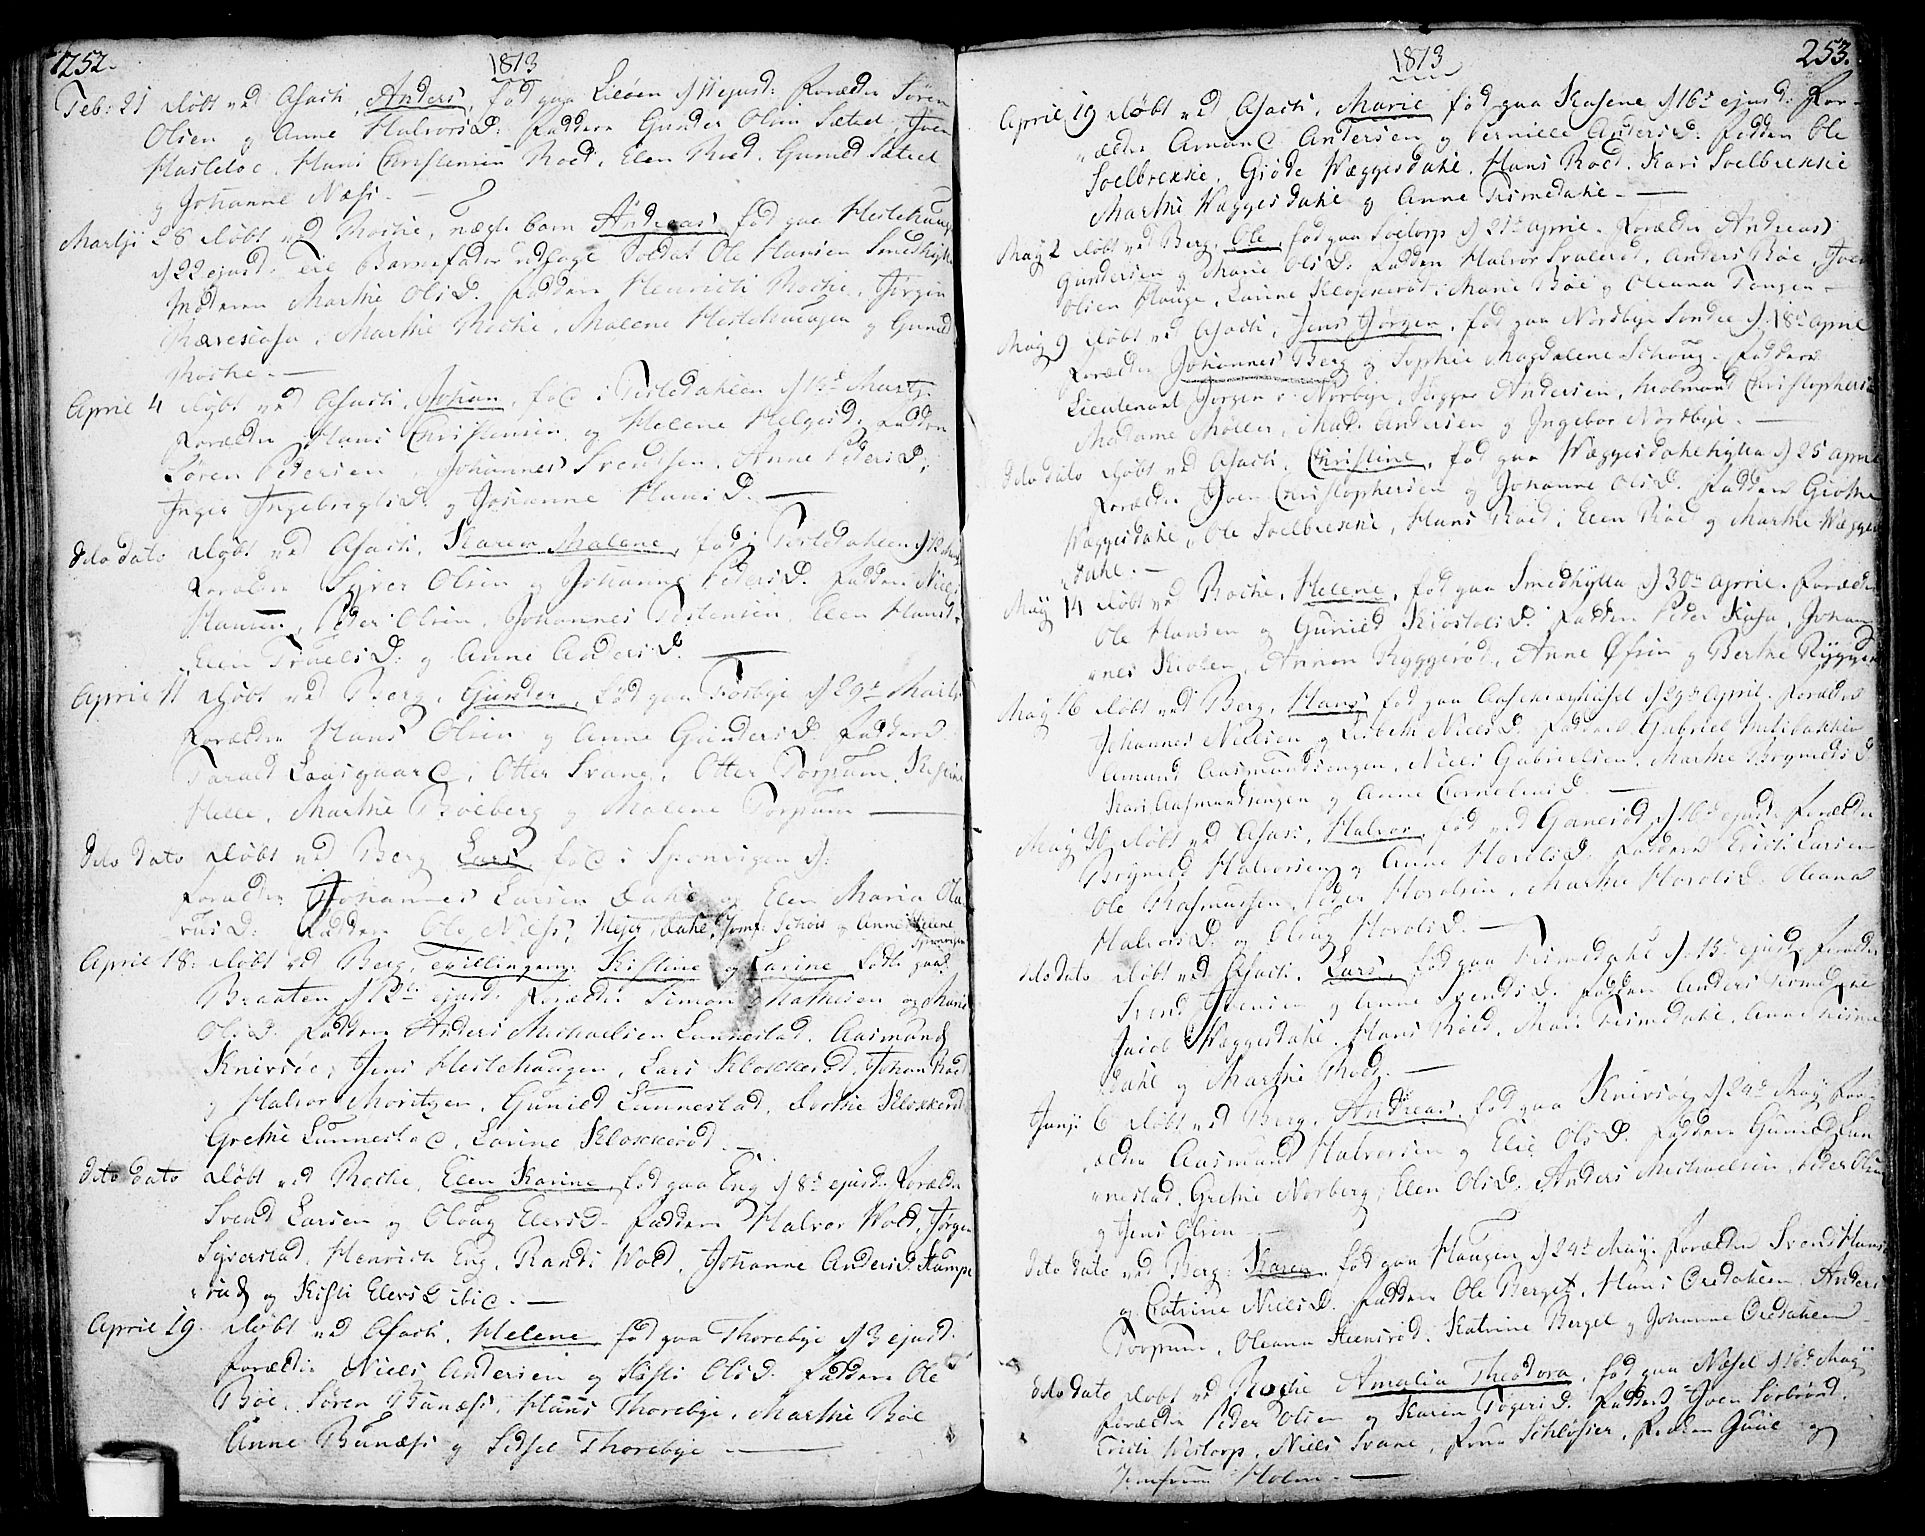 252.
1813
Feb: 21 Døbt ved Asach, Anders, fød paa Lieøen d 11 ejusd: Forældre Søren
Olsen og Anne HalvorsD: Faddere Gunder Olsen Sætret, Joen
Hasteløe, Hans Christensen Roed, Elen Roed, Gunild Sætret
og Johanne Næss. —
Martji 28 Døbt ved Rocke, uægte barn Andreas, fød paa Hestehaug
d 22 ejusd: til Barnefader udlagt Soldat Ole Hansen Smedhytte
Moderen Marthe OlsD. Faddere Henrich Rocke, Jørgen
Marthe Rocke, Malene Hestehaugen og Gunild
Rocke. —
April 4 Døbt ved Asach, Johan, fød i Tistedahlen d Martj.
Forældre Hans Christensen og Helene HelgesD: Faddere
Søren Petersen, Johannes Svendsen, Anne PedersD;
Inger IngebregtsD. og Johanne HansD. —
dito dato Døbt ved Asach, Karen Malene, fød i Tistedahlen d
Forældre Syver Olsen og Johanne PedersD. Faddere Niels
Hansen, Peder Olsen, Johannes Torstensen, Elen HansD.
Elen TruelsD: og Anne AndersD. —
April 11 Døbt ved Berg, Gunder, fød paa Torbye d 29de Martj
Forældre Hans Olsen og Anne GundersD. Faddere
Tarald Laasgaard, Otter Svane, Otter Torpum, Kistine
Helle, Marthe Bøeberg og Malene Torpum —
dito dato Døbt ved Berg Lars, fød i Sponvigen d:
Forældre Johannes Larsen Dahle og Elen Maria Ola-
rusD: Faddere Ole Næss, Dahl, Jomf: Schøie og Anne Helene
Sponvigen
April 18: Døbt ved Berg, Tvillingerne Kistine og Larine fødte paa
Braaten d ejusd: Forældre Simon Mathisen og Marie
OlsD. Faddere Anders Michaelsen Lunnestad, Aasmund
Knivsøe, Jens Hestehaugen, Lars Klokkerød, Johan Roed
og Halvor Moritzen, Gunild Lunnestad, Dorthe Klokkerød
Grethe Lunnestad, Larine Klokkerød. —
dito dato Døbt ved Rocke, Elen Karine, fød paa Eng d 8de ejusd: Forældre
Svend Larsen og Oloug ElersD. Faddere Halvor Wold, Jørgen
Syverstad, Henrich Eng, Randi Wold, Johanne AndersD Kampe-
rud og Kisti ElersD ibid. —
April 19. Døbt ved Asach, Helene fød paa Thorebye d 3 ejusd.
Forældre Niels Andersen og Kisti OlsD. Faddere Ole
Bøe, Søren Bunæss, Hans Thorebye, Marthe Bøe
Anne Bunæss og Sidsel Thorebye —
1813
253.
April 19 Døbt ved Asach, Marie fød paa Kasene d 16de ejusd: For-
ældre Amund Andersen og Pernille AndersD: Faddere Ole
Soelbrekke, Giøde Wæggesdahl, Hans Roed, Kari Soelbrekke
Marthe Wæggesdahl og Anne Tismedahl. —
Maij 2 Døbt ved Berg, Ole, fød paa Soetorp d 21de April. Forældre Andreas
Gundersen og Marie OlsD: Faddere Halvor Svalerød, Anders Bøe, Joen
Olsen Hauge, Larine Klopperød, Marie Bøe og Oleana Tangen —
Maij 9 Døbt ved Asach, Jens Jørgen, fød paa Nordbye Søndre d. 18de April
Forældre Johannes Berg og Sophie Magdalene Schoug. Faddere
Lieutenant Jørgen v. Nordbye, Andersen, Christophersen
Madame Møller, Mad: Andersen og Ingebor Nordbye. —
dito dato Døbt ved Asach, Christine, fød paa Wæggesdahlhytta d 25 April
Forældre Joen Christophersen og Johanne OlsD. Faddere Giøthe
Wæggesdahl, Ole Soelbrekke, Hans Roed, Elen Roed og Marthe Wægges-
dahl. —
Maij 14 Døbt ved Rocke, Helene, fød paa Smedhytta d 30te April. Forældre
Ole Hansen og Gunild KiøstolsD. Faddere Peder Kasa, Johan-
nes Kiølen, Annon Ryggerød, Anne Øfsen og Berthe Rygger
Maij 16 Døbt ved Berg, Hans fød paa d 29de April. Forældre
Johannes Nielsen og Lisbeth NielsD. Faddere Gabriel
Amund Aasmundsengen, Niels Gabrielsen, Marthe BrynildsD
Kari Aasmundsengen og Anne CorneliusD. —
Maij Døbt ved Asach, Halvor, fød ved Ganerød d 16de ejusd. Forældre
Brynild Halvorsen og Anne HovelsD. Faddere Erich Larsen
Ole Rasmussen, Peder Hovelsen, Marthe HovelsD. Oleana
HalvorsD. og Oloug HovelsD. —
dito dato Døbt ved Asach, Lars, fød paa Tismedahl d. 15de ejusd. Forældre
Svend Svensen og Anne SvendsD. Faddere Anders Tismedahl
Jacob Wæggesdahl, Hans Roed, Mari Tismedahl, Anne Tisme-
dahl og Marthe Roed. —
Junji 6 Døbt ved Berg, Andreas, fød paa Knivsøe d 24de Maij For-
ældre Aasmund Halvorsen og Elie OlsD. Faddere Gunild Lun-
nestad, Grethe Norberg, Elen OlsD, Anders Michaelsen, Peder Olsen
og Jens Olsen —
dito dato ved Berg: Karen, fød paa Haugen d 24de Maij. Forældre Svend Hans
og Catrine NielsD. Faddere Ole Berget, Hans Oredahlen, Anders
Torpum, Oleana Steensrød, Katrine Berget og Johanne Oredahlen
dito dato Døbt ved Rocke Amalia Theodora, fød paa Næset d 16de Maij
Forældre Peder Olsen og Karen TogersD. Faddere Joen Sørbrød,
Erich Westorp, Niels Svane, Frue Schlösser, Frøken Juul og
Jomfrue Holm. —